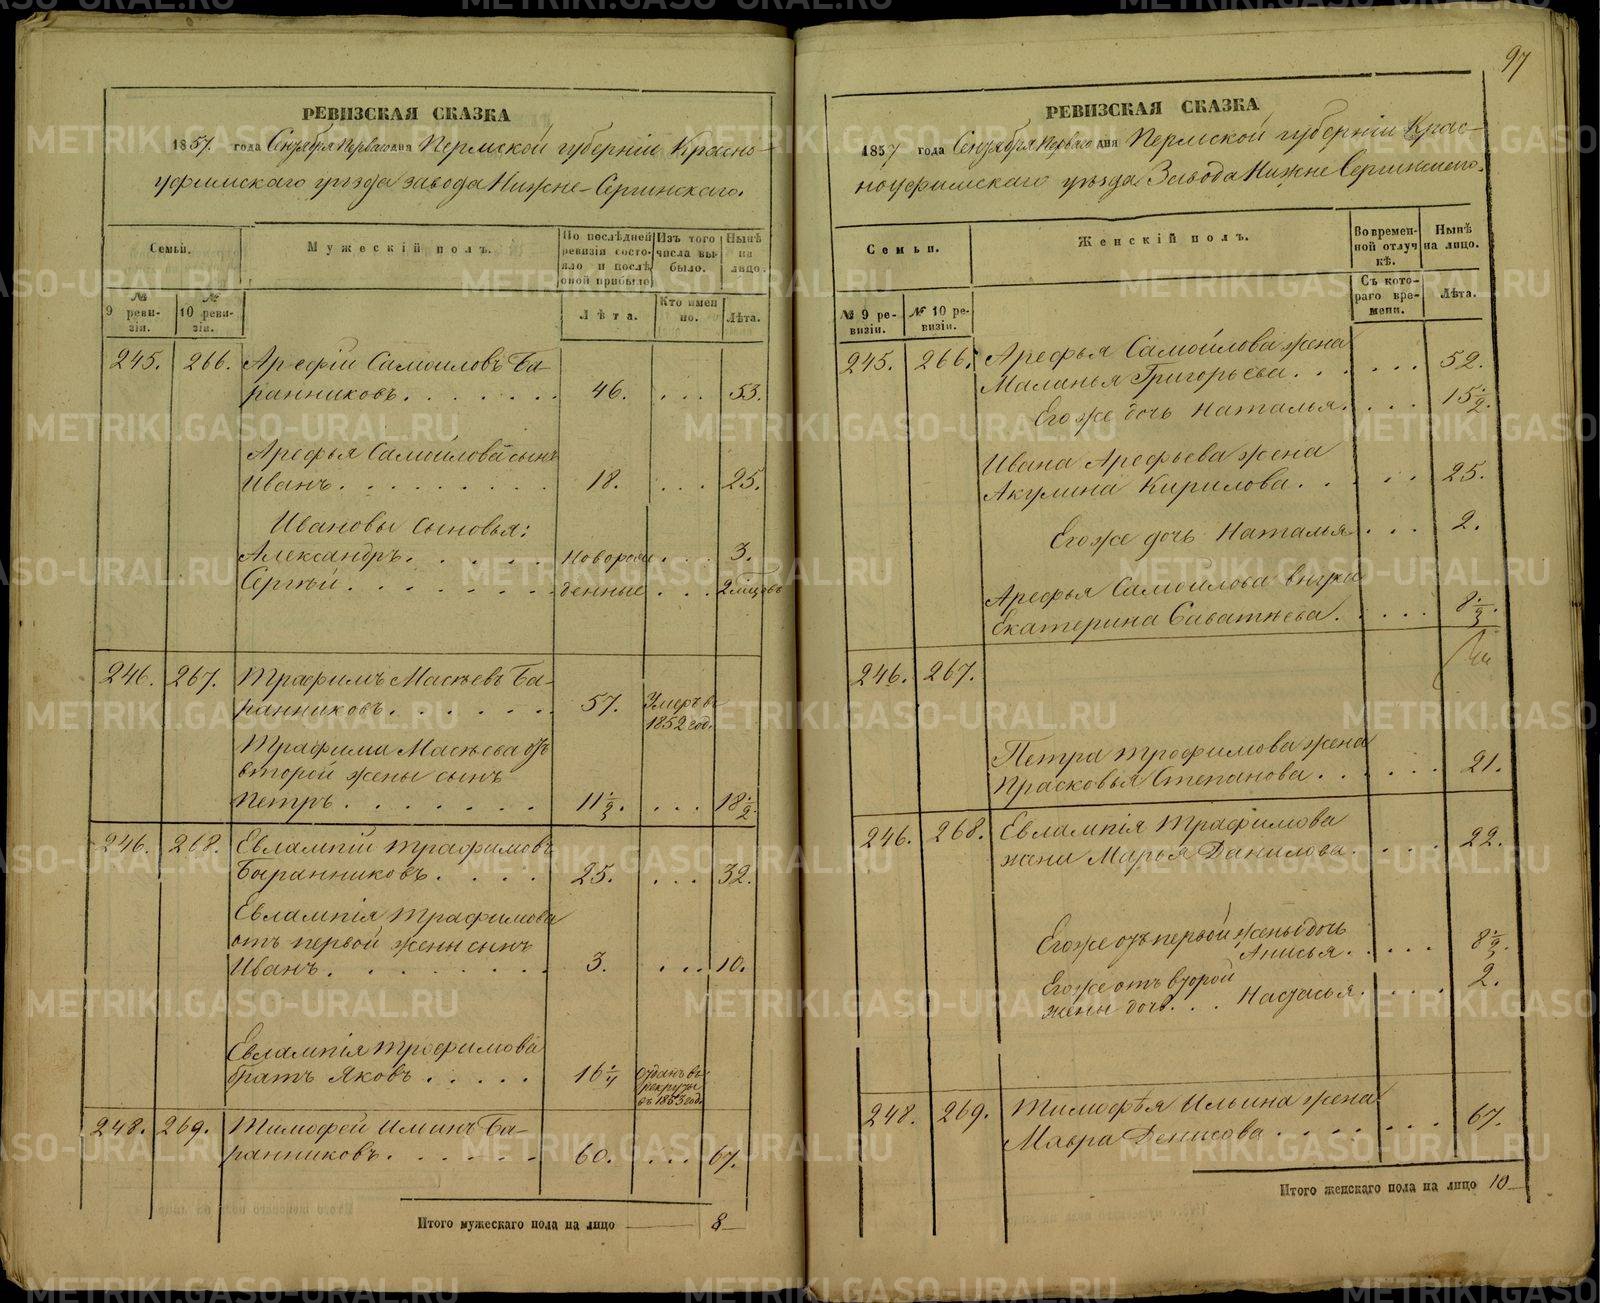 РЕВИЗСКАЯ СКАЗКА
1857 года Сентября первого дня Пермской губернiи Красно-
уфимскаго уѣзда завода Нижне-Сергинскаго.
Семьи.
Мужескiй полъ.
По послѣдней ревизiи состояло и послѣ оной прибыло
Изъ того числа выбыло.
Нынѣ на лицо.
№ 9 ревизiи.
№ 10 ревизiи.
Лѣта.
Кто именно.
Лѣта.
245. 266. Арефiй Самоиловъ Ба-
ранниковъ. 46. 53.
Арефья Самоилова сынъ
Иванъ. 18. 25.
Ивановы сыновья:
Александръ. новорож 3.
Сергѣй. денные 2 мѣсяцовъ
246. 267. Трафимъ Масѣевъ Ба-
ранниковъ. 57. Умеръ в
1852 год.
Трафима Масѣева отъ
второй жены сынъ
Петръ. 11 1/2. 18 1/2.
246. 268. Евлампiй Трафимовъ
Баранниковъ. 25. 32.
Евлампiя Трафимова
отъ первой жены сынъ
Иванъ. 3. 10.
Евлампiя Трофимова
братъ Яковъ. 16 1/4 отданъ въ
рекруты
въ 1853 год.
248. 269. Тимофей Ильинъ Ба-
ранниковъ. 60. 67.
Итого мужескаго пола на лицо 8
97
РЕВИЗСКАЯ СКАЗКА
1857 года Сентября перваго дня Пермской губернiи Крас-
ноуфимскаго уѣзда Завода Нижне Сергинскаго.
Семьи.
Женскiй полъ.
Во временной отлучкѣ.
Нынѣ на лицо.
№ 9 ревизiи.
№ 10 ревизiи.
Съ котораго времени.
Лѣта.
245. 266. Арефья Самойлова жена
Маланья Григорьева. 52.
Его же дочь Наталья. 15 1/2.
Ивана Арефьева жена
Акулина Кирилова. 25.
Его же дочь Наталья 2.
Арефья Самоилова внука
Екатерина Саватѣева. 8 1/2.
246. 267.
Петра Трофимова жена
Прасковья Степанова. 21.
246. 268. Евлампiя Трафимова
жена Марья Данилова. 22.
Его же отъ первой жены дочь
Анисья. 8 1/2.
Его же отъ второй
жены дочь. Настасья. 2.
248. 269. Тимофѣя Ильина жена
Мавра Денисова. 67.
Итого женскаго пола на лицо 10
METRIKI.GASO-URAL.RU